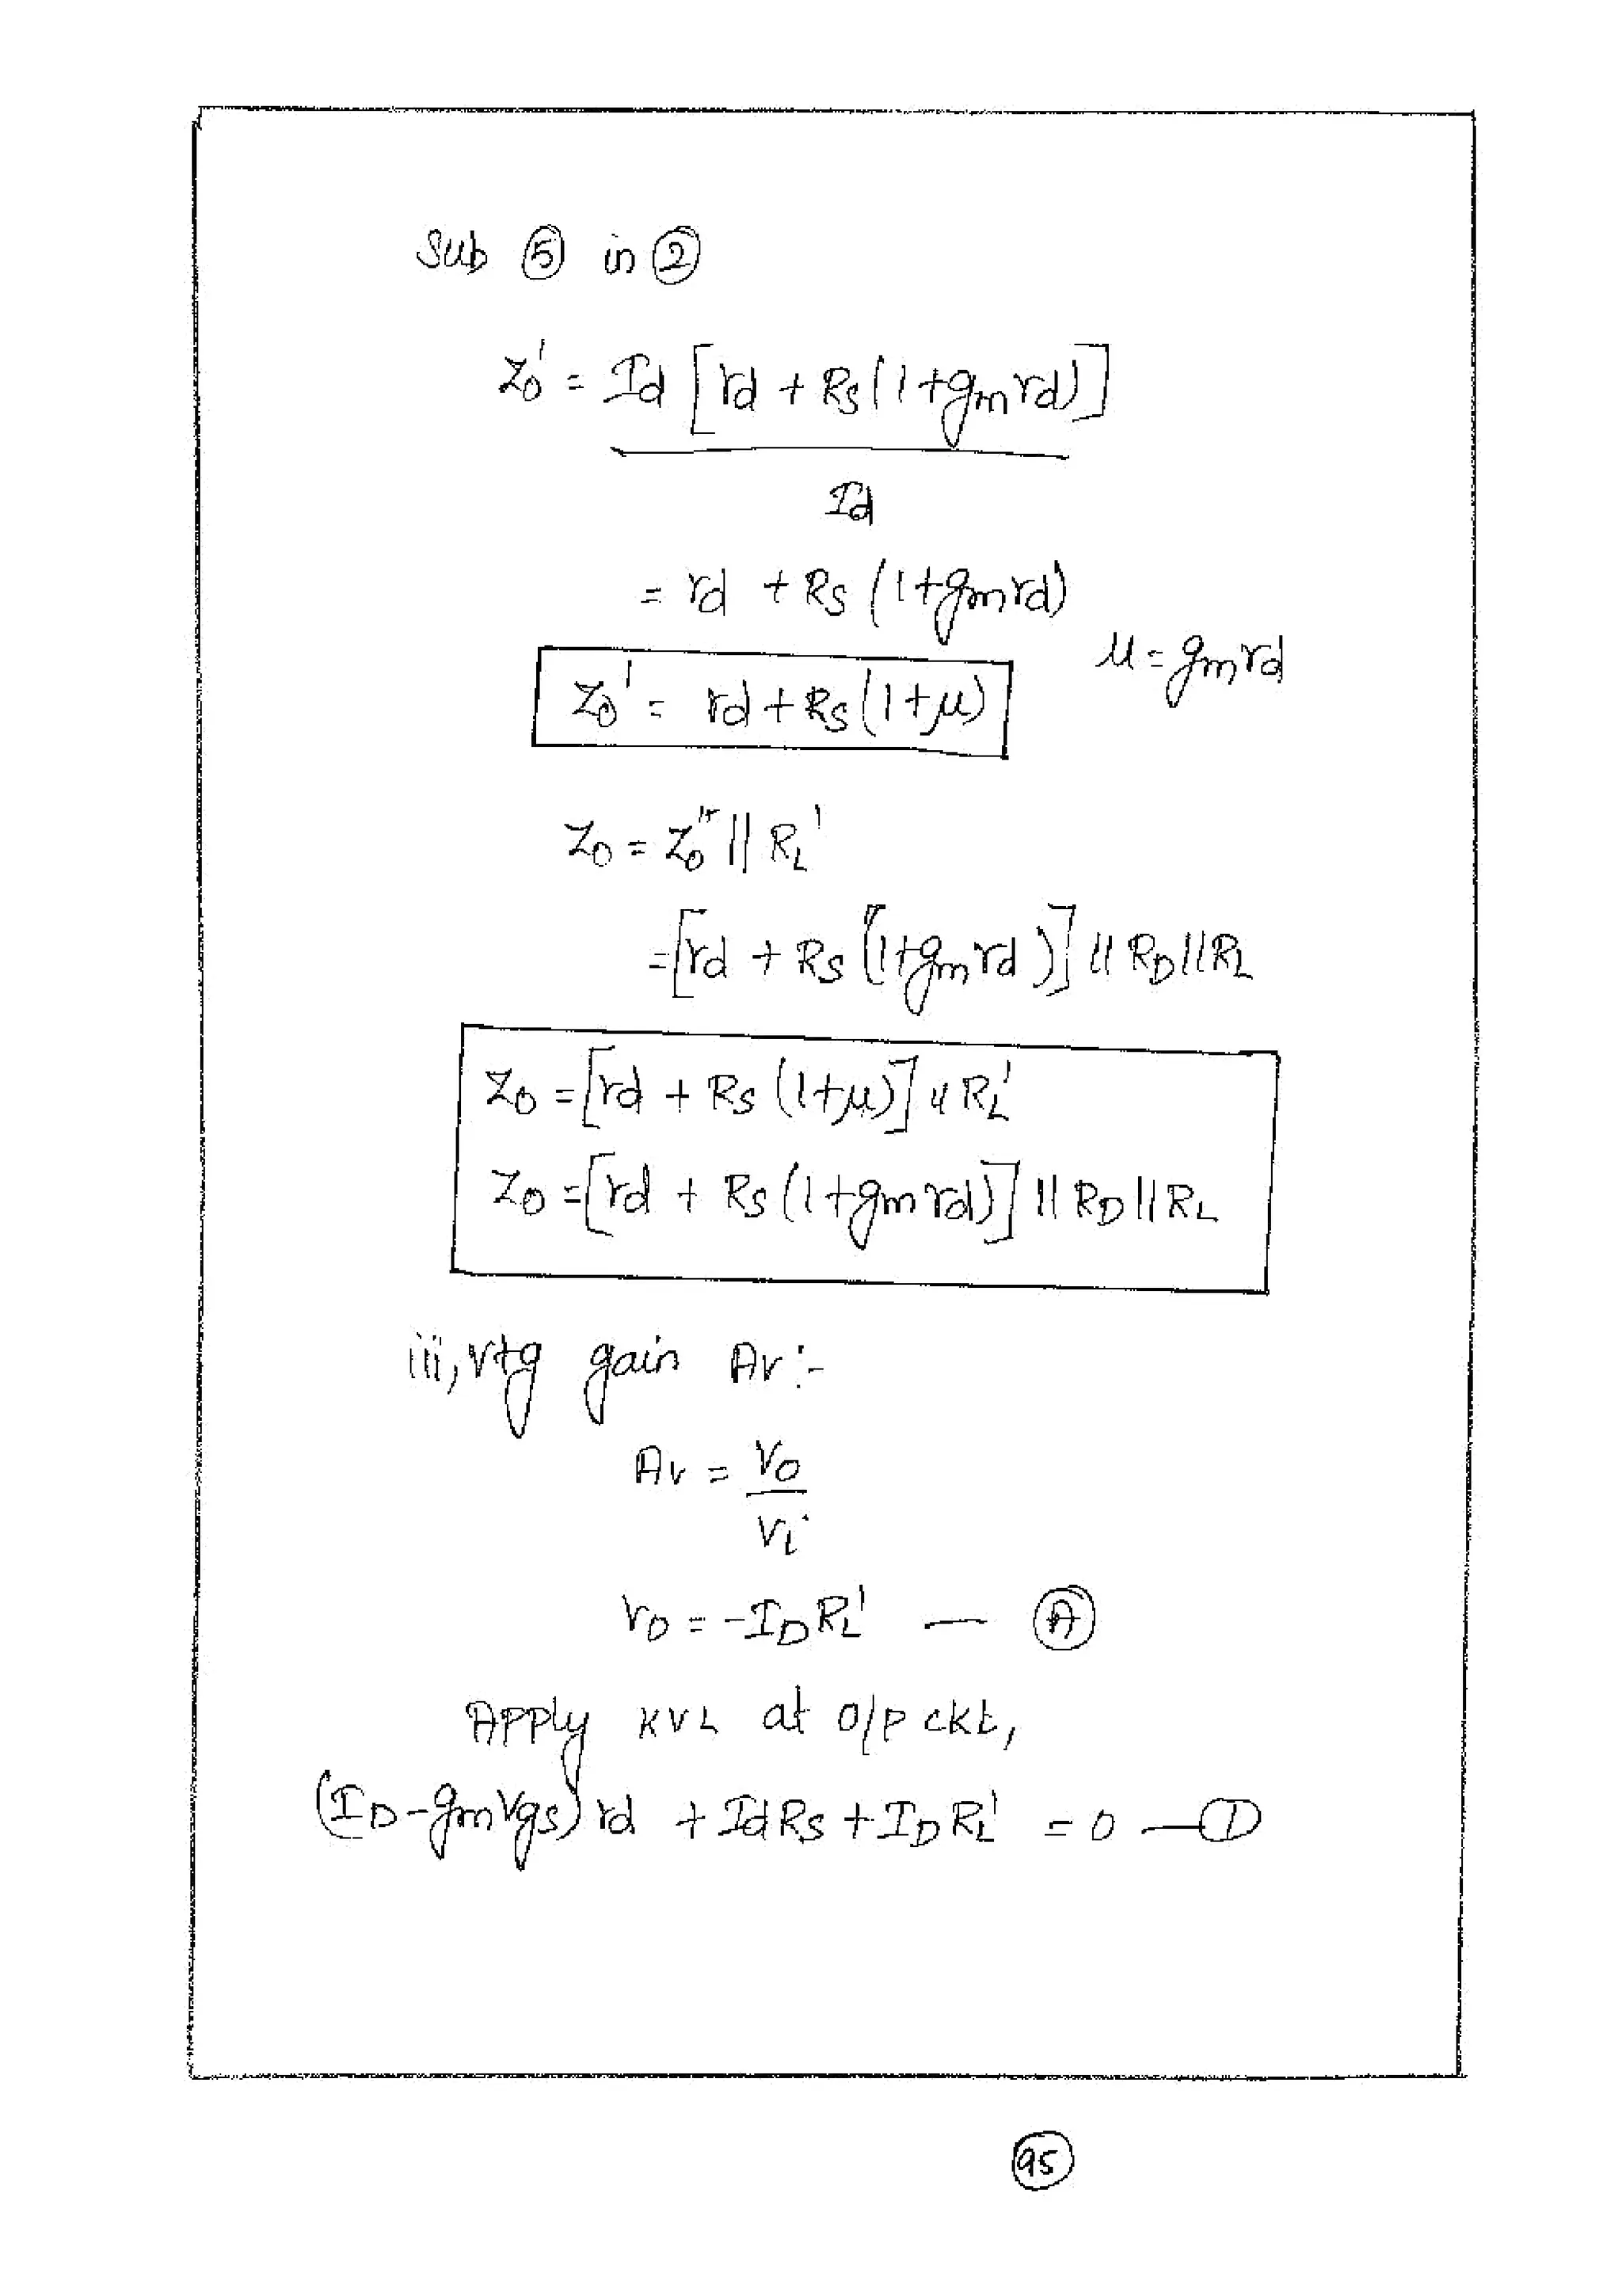 Sub ⑤ in ②
Zo' = Id [rd + Rs(1+gmrd)]
Id
= rd + Rs (1+gmrd)
μ = gmrd
Zo' = rd + Rs(1+μ)
Zo = Zo'' || RL'
=[rd + Rs (1+gmrd)] || RD||RL
Zo =[rd + Rs (1+μ)] || RL'
Zo =[rd + Rs (1+gmrd)] || RD||RL
iii, vtg gain Av :-
Av = Vo
Vi
Vo = -ID RL' — Ⓐ
Apply KVL at o/p ckt,
(ID-gmVgs)rd + IdRs + ID RL' = 0 — ①
95